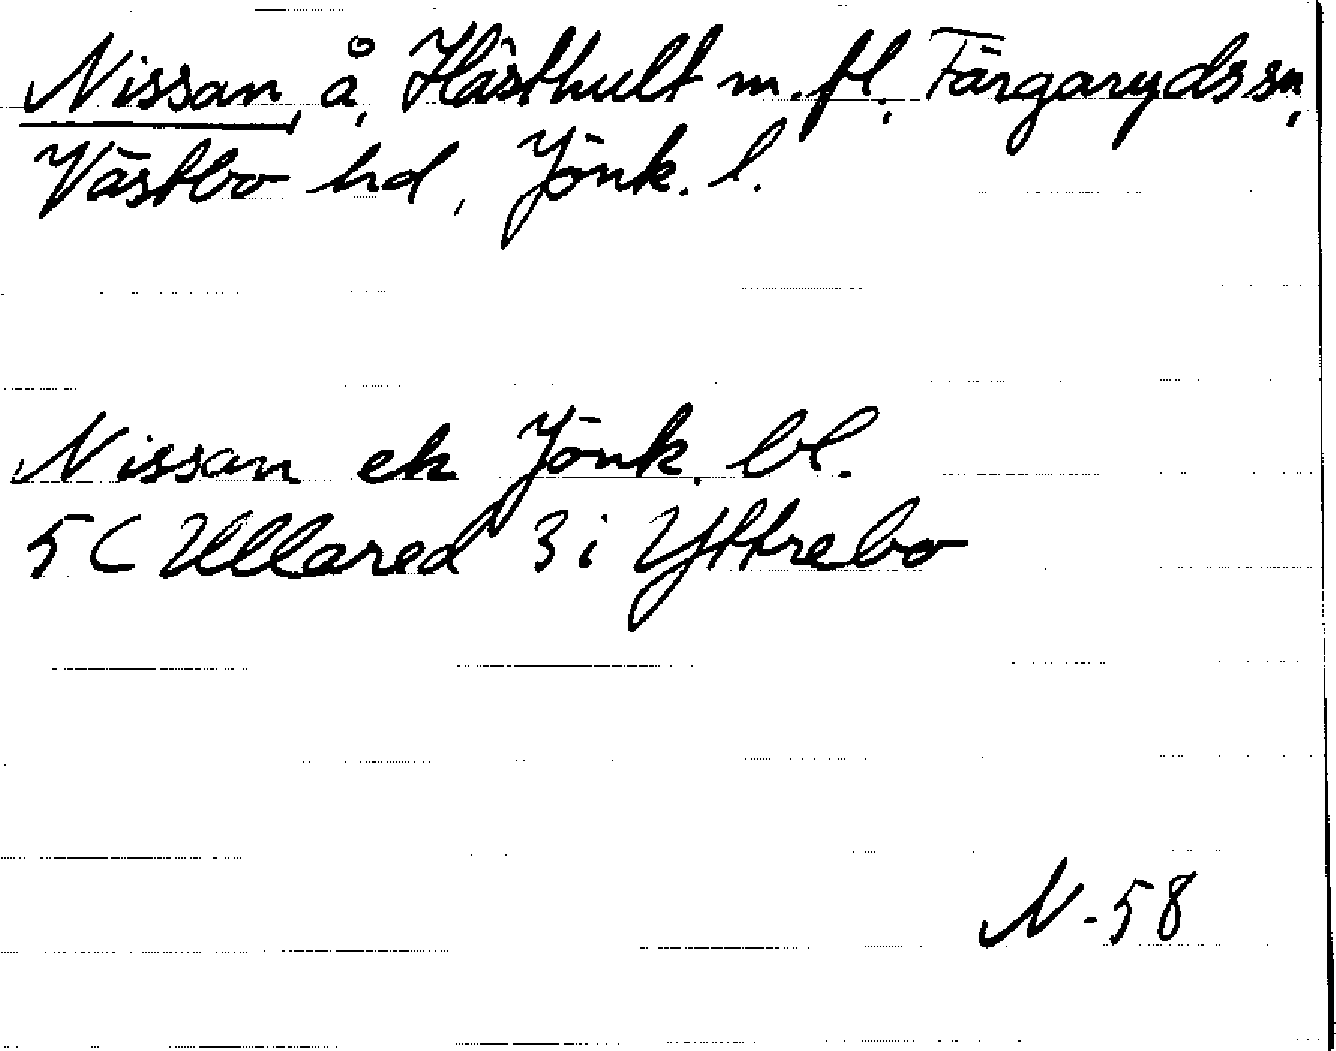 Nissan, å, Hästhult m. fl. Färgaryds sn,
Västbo hd, Jönk. l.
Nissan ek Jönk. bl.
5C Ullared 3i Yttrebo
N-58